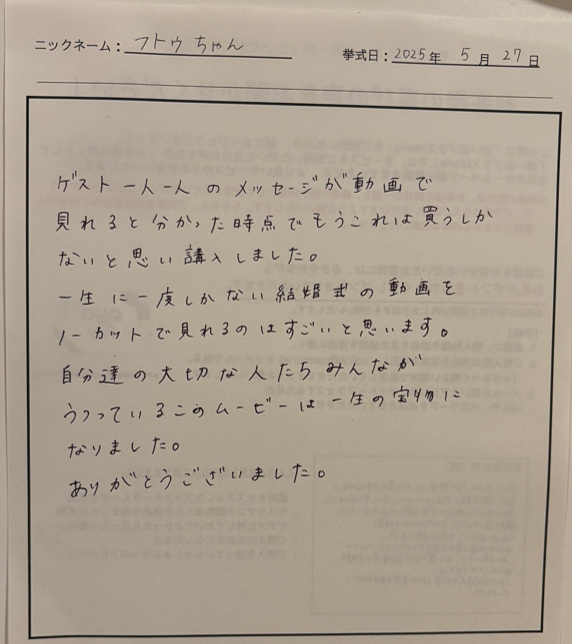 ニックネーム：フトゥちゃん
挙式日：2025年 5月 27日
ゲスト一人一人のメッセージが動画で
見れると分かった時点でもうこれは買うしか
ないと思い講入しました。
一生に一度しかない結婚式の動画を
ノーカットで見れるのはすごいと思います。
自分達の大切な人たちみんなが
うつっているこのムービーは一生の宝物に
なりました。
ありがとうございました。